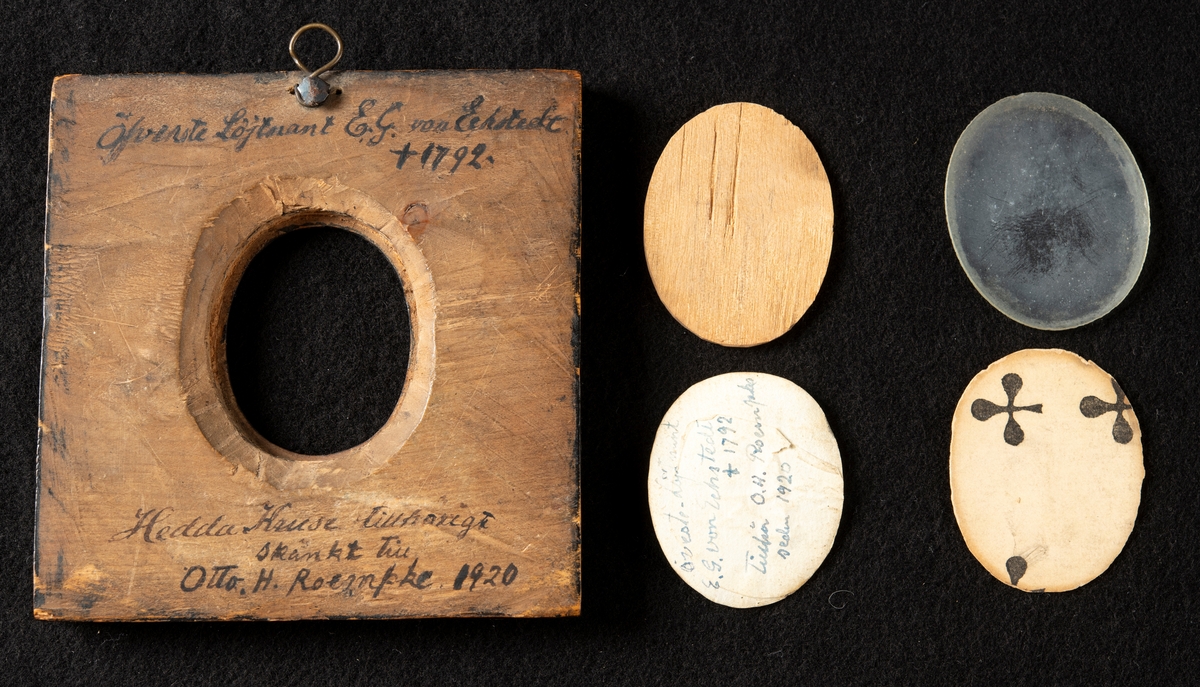 Öfverste Löjtnant E. G. von Eckstedt
+ 1792.
Hedda Kruse tillhörigt
skänkt till
Otto. H. Roempke. 1920
överste-Löjtnant
E. G. von Eckstedt
+ 1792
tillhör O. H. Roempke
sedan 1920